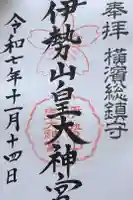 奉拝 横濱総鎮守
伊勢山皇大神宮
令和七年十一月十四日